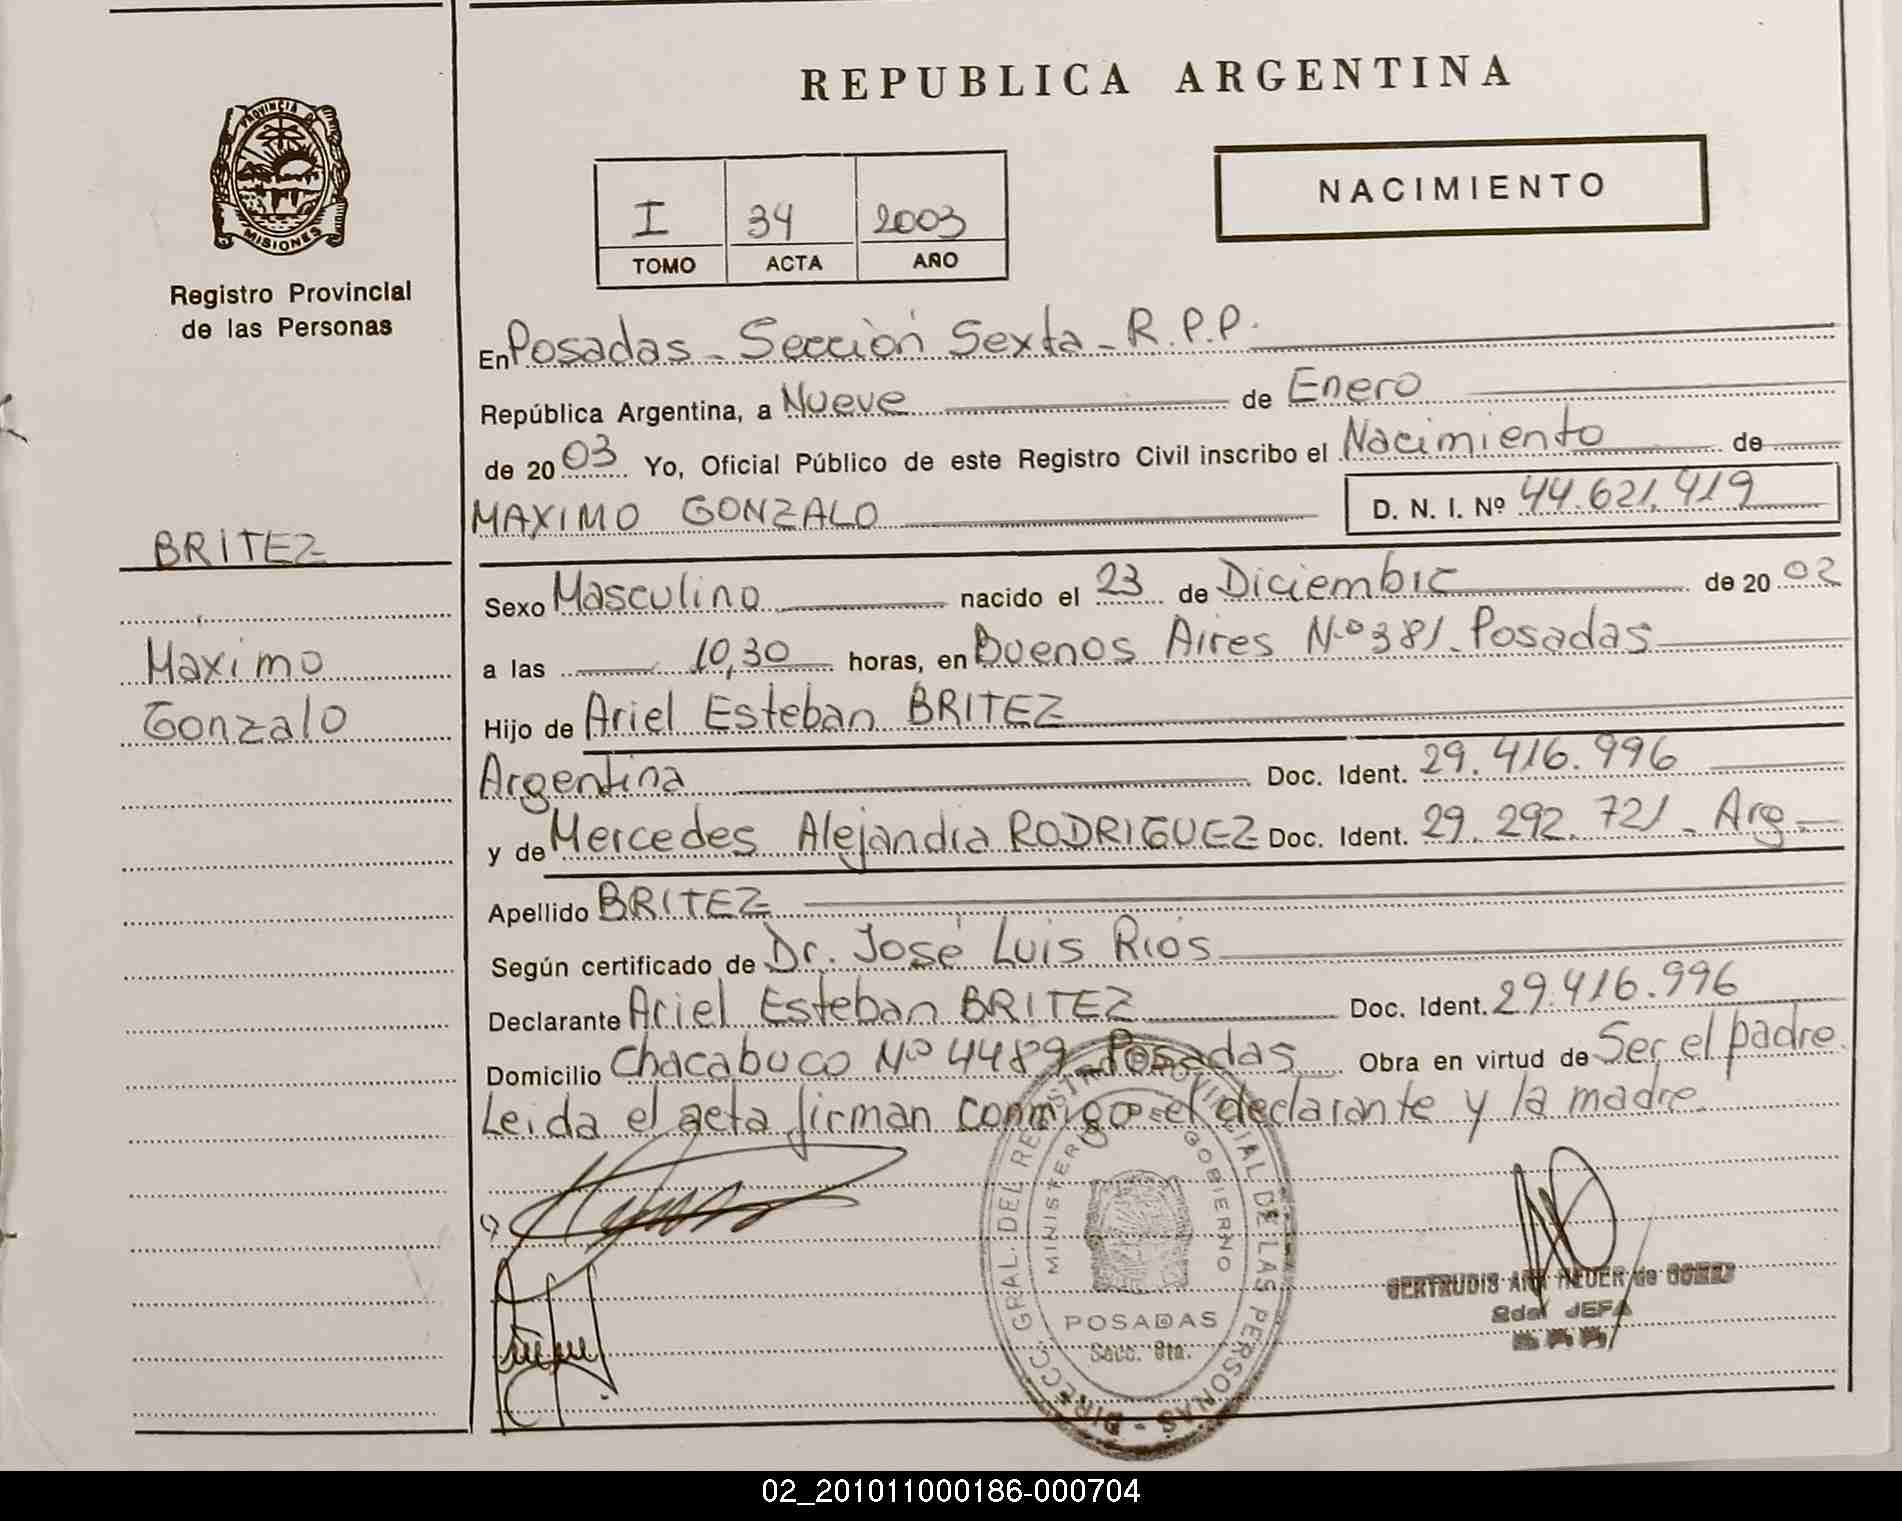 REPUBLICA ARGENTINA
PROVINCIA DE
MISIONES
Registro Provincial
de las Personas
NACIMIENTO
I 34 2003
TOMO ACTA AÑO
En Posadas - Sección Sexta - R.P.P.
República Argentina, a Nueve de Enero
de 2003 Yo, Oficial Público de este Registro Civil inscribo el Nacimiento de
MAXIMO GONZALO D. N. I. Nº 44.621.419
BRITEZ
Maximo
Gonzalo
Sexo Masculino nacido el 23 de Diciembre de 20 02
a las 10,30 horas, en Buenos Aires Nº 381 - Posadas
Hijo de Ariel Esteban BRITEZ
Argentina Doc. Ident. 29.416.996
y de Mercedes Alejandra RODRIGUEZ Doc. Ident. 29.292.721 - Arg -
Apellido BRITEZ
Según certificado de Dr. José Luis Rios
Declarante Ariel Esteban BRITEZ Doc. Ident. 29.416.996
Domicilio Chacabuco Nº 4489 - Posadas Obra en virtud de Ser el padre.
Leida el acta firman conmigo el declarante y la madre.
DIRECC. GRAL. DEL REGISTRO PROVINCIAL DE LAS PERSONAS -
MINISTERIO DE GOBIERNO
POSADAS
Secc. 6ta.
GERTRUDIS de GOMEZ
JEFA
02_201011000186-000704